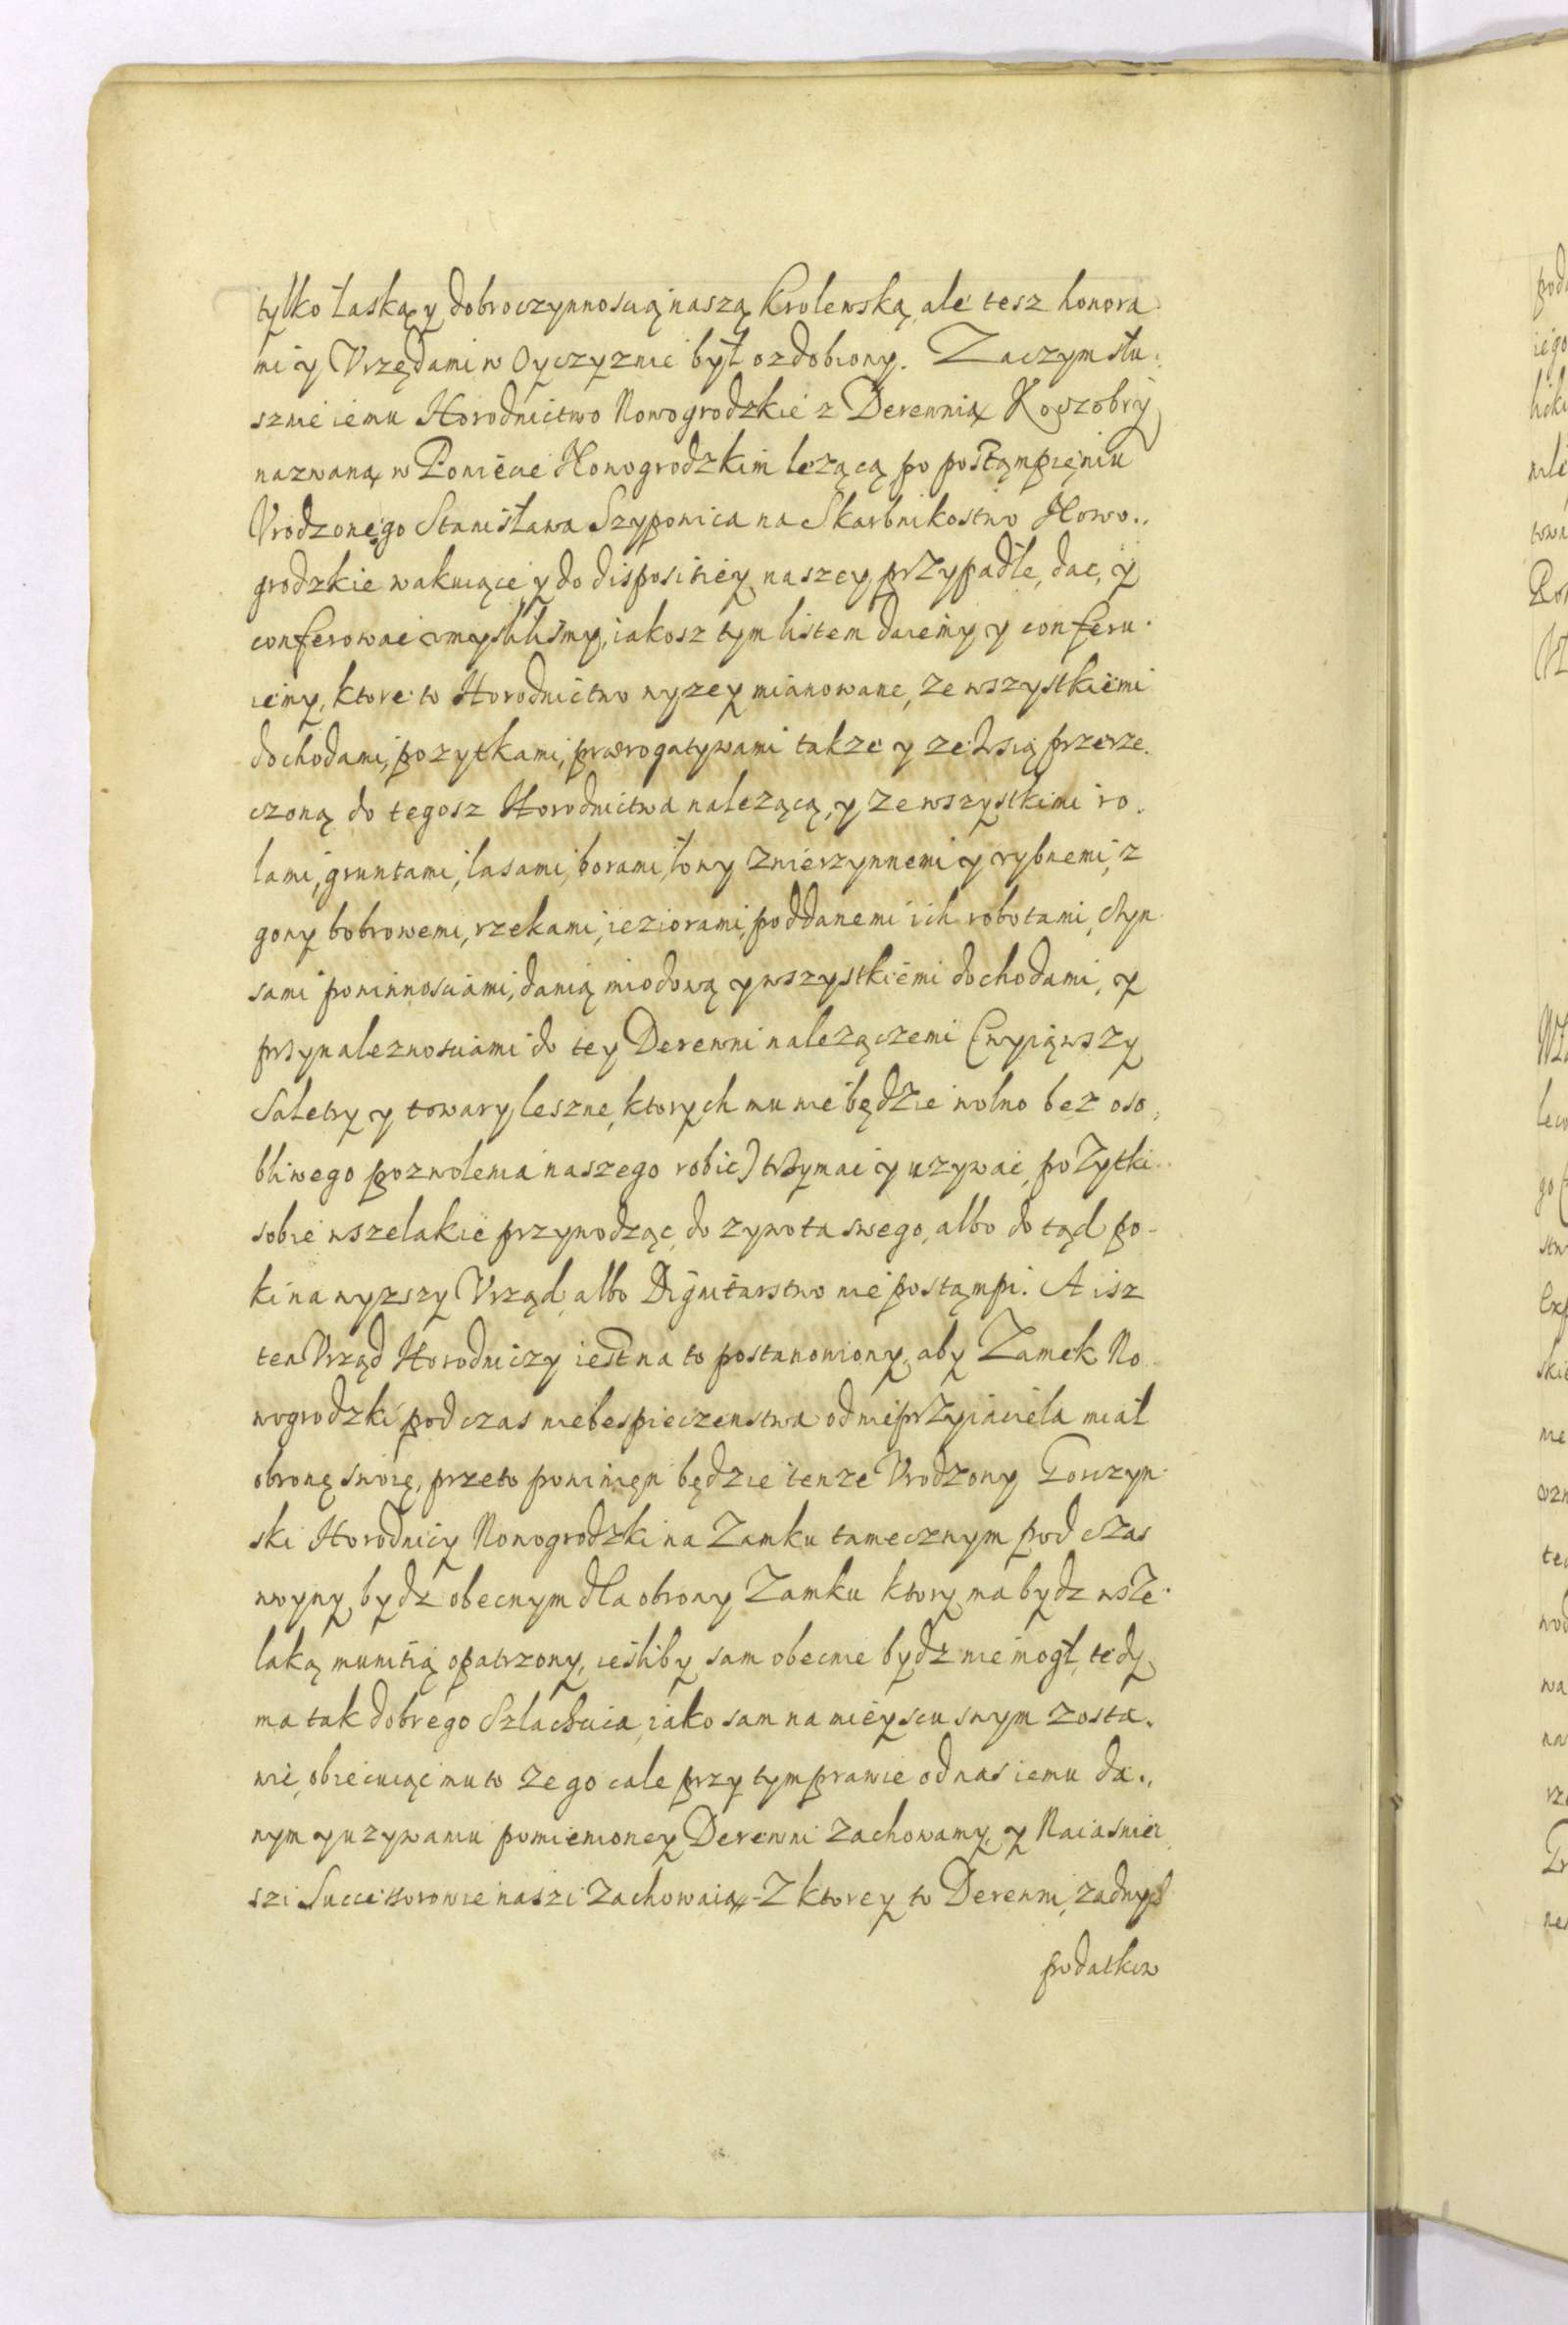 tylko łaską y dobroczynnoscią naszą Krolewską, ale tesz honora
mi y Vrzędami w Oyczyznie był ozdobiony. Zaczym słu
sznie iemu Horodnictwo Nowogrodzkie z Derewnią Koszobry
nazwaną w Powiecie Nowogrodzkim lezącą po postąmpięniu
Vrodzonego Stanisława Szyponica na Skarbnikostwo Nowo..
grodzkie wakuiące y do dispositiey naszey przypadłe, dac, y
conferowac vmyslilismy, iakosz tym listem daiemy y conferu
iemy, ktore to Horodnictwo wyzey mianowane, ze wszystkiemi
dochodami, pozytkami, prærogatywami takze y ze Wsią przerze
czoną do tegosz Horodnictwa nalezącą, y ze wszystkimi ro
lami, gruntami, lasami, borami, łowy zwierzynnemi y rybnemi, z
gony bobrowemi, rzekami, ieziorami, poddanemi ich robotami, czyn
sami powinnosciami, danią miodową y wszystkiemi dochodami, y
przynaleznosciami do tey Derewni nalezączemi (wyiąwszy
Saletry y towary leszne, ktorych mu nie będzie wolno bez oso,
bliwego pozwolenia naszego robic) trzymac y uzywac, pozytki
sobie wszelakie przywodząc, do zywota swego, albo do tąd po-
ki na wyzszy Vrząd, albo Dignitarstwo nie postąmpi. A isz
ten Vrząd Horodniczy iest na to postanowiony, aby Zamek No
wogrodzki pod czas niebespieczenstwa od nieprzyiaciela miał
obronę swoię, przeto powinięn będzie tenze Vrodzony Gorczyn
ski Horodnicy Nowogrodzki na Zamku tamecznym pod czas
woyny bydz obecnym dla obrony Zamku ktory ma bydz wsze
laką munitią opatrzony, iesliby sam obecnie bydz nie mogł, tedy
ma tak dobrego Szlachcica, iako sam na mieyscu swym zosta.
wic, obiecuiąc mu to ze go cale przy tym prawie od nas iemu da..
nym y uzywaniu pomienioney Derewni zachowamy, y Naiasniei
szi Successorowie naszi zachowaią - Z ktorey to Derewni, zadnych
podatkow